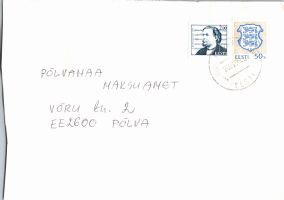 EESTI
EESTI 50 s.
PÕLVAMAA
MAKSUAMET
VÕRU tn. 2
EE2600 PÕLVA